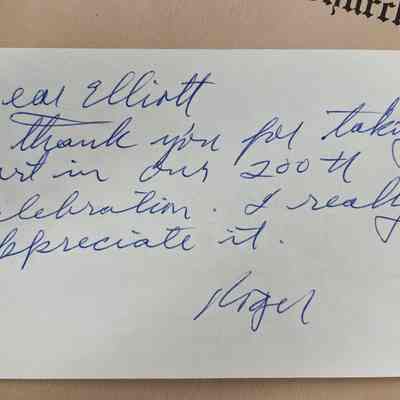 hurch
ear Elliott
Thank you for takig
art in our 200th
elebration. I really
ppreciate it.
Roger